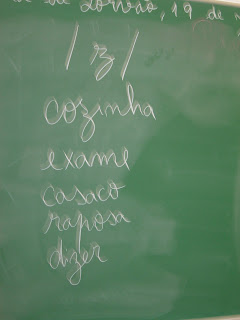 de Londrão, 19 de
/z/
cozinha
exame
casaco
raposa
dizer